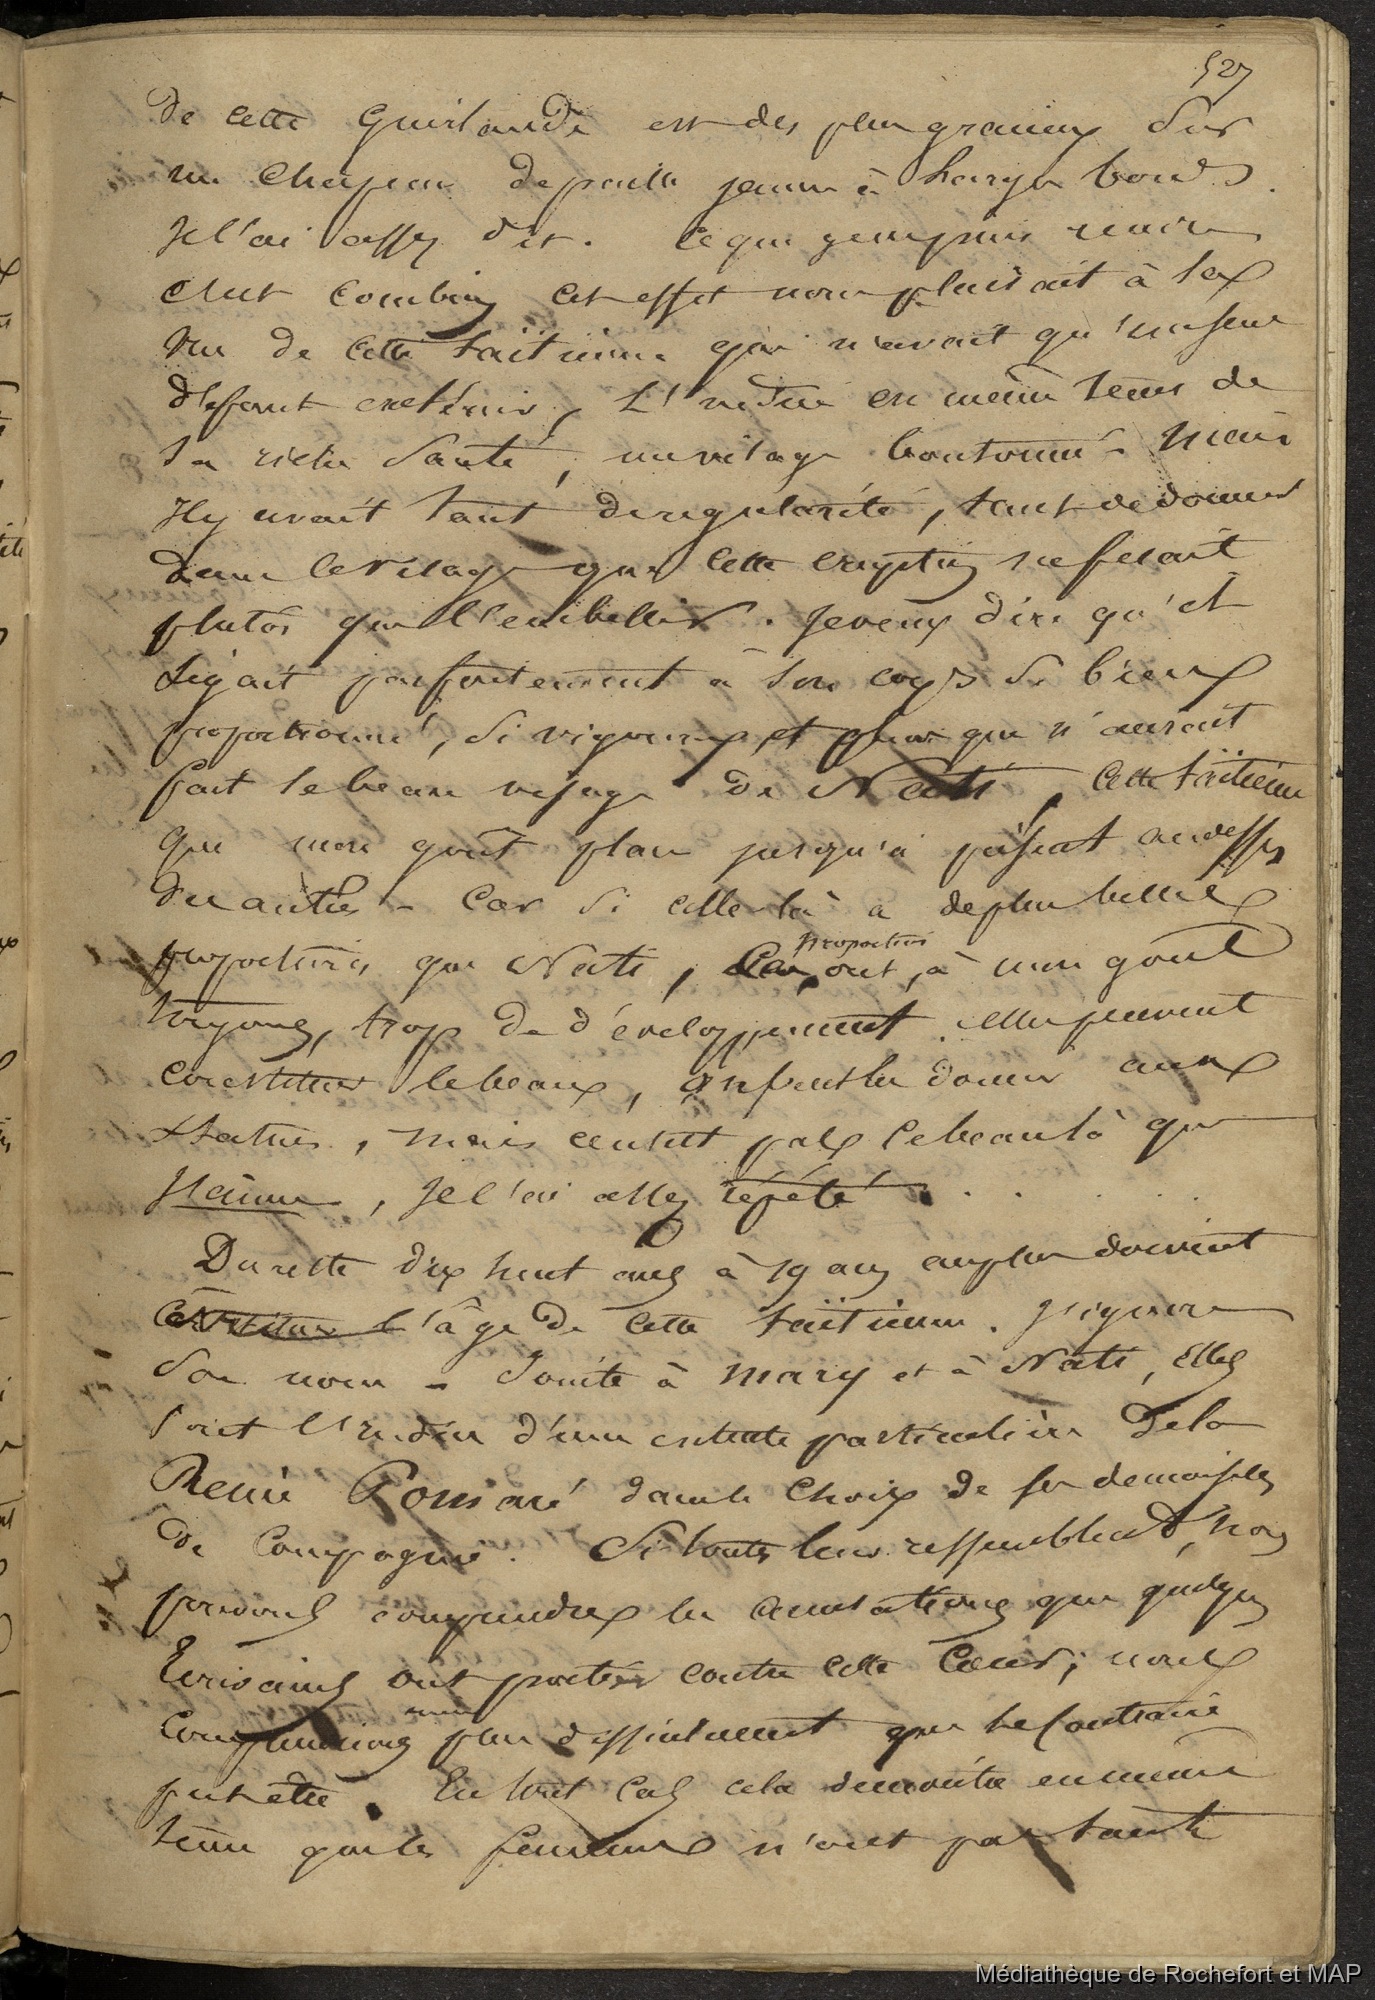 527
de cette Guirlande est des plus gracieux Sur
un Chapeau de paille jaune à Larges bords.
Je l'ai assez dit. Ce que je puis
c'est Combien cet effet nous plaisait à la
vue de cette taïtienne qui n'avait qu'un seul
défaut extérieur, L' indice en même tems de
Sa riche Santé, un visage boutonné - Mais
Il y avait tant de régularité, tant de douceur
dans le visage que cette eruption ne fesait
plutôt que l'embellir. Je veux dire qu'el
Seyait parfaitement à Son corps Si bien
proportionné, Si vigoureux, et plus que n'aurait
fait le beau visage de Nati, Cette taïtienne
que mon goût place jusqu'à présent au dessus
des autres - Car Si celle là a de plus belles
proportions que Nati, Ces proportions ont, à mon goût
toujours, trop de développement. elles peuvent
constituer le beau, on peut les donner aux
Statues, mais ce n'est pas ce beau là que
J'aime, Je l'ai assez répété . . . . .
Du reste dix huit ans à 19 ans au plus doivent
Constituer l'âge de cette taïtienne. J'ignore
Son nom - Jointe à Mary et à Nati, Elles
Sont l'indice d'une entente particulière De la
Reine Pomaré dans le Choix de ses demoiselles
de Compagnie. Si toutes leur ressemblent, Nous
pouvons comprendre les accusations que quelques
Ecrivains ont portées contre cette Cour; nous
Comprenions même plus difficilement que le Contraire
put être. En tout Cas cela démontre en même
tems que les femmes n'ont pas tant
Médiathèque de Rochefort et MAP